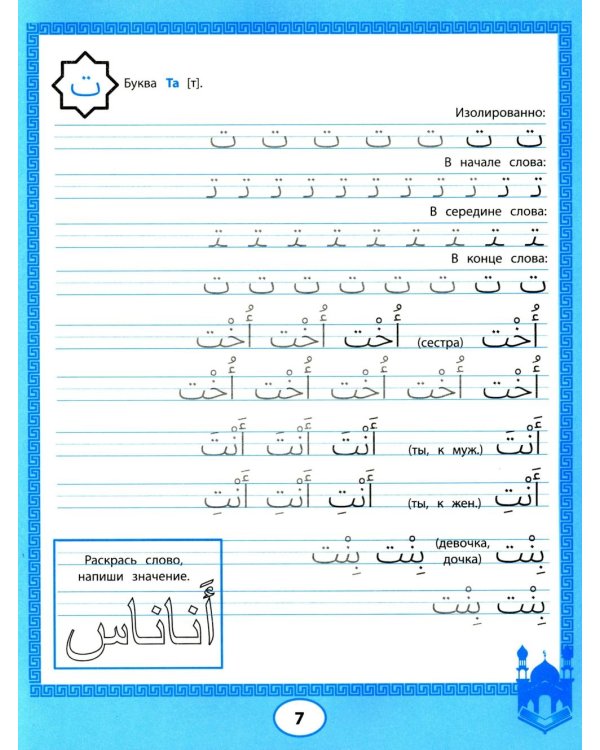 ت
Буква Та [т].
Изолированно:
ت ت ت ت ت ت ت
В начале слова:
تـ تـ تـ تـ تـ تـ تـ تـ تـ تـ
В середине слова:
ـتـ ـتـ ـتـ ـتـ ـتـ ـتـ ـتـ ـتـ
В конце слова:
ت ت ت ت ت ت ت ت
أُخْت (сестра) أُخْت أُخْت أُخْت
أُخْت أُخْت أُخْت أُخْت أُخْت
أَنْتَ (ты, к муж.) أَنْتَ أَنْتَ أَنْتَ
أَنْتِ (ты, к жен.) أَنْتِ أَنْتِ أَنْتِ
بِنْت (девочка, дочка) بِنْت بِنْت
بِنْت بِنْت
Раскрась слово,
напиши значение.
أَناناس
7